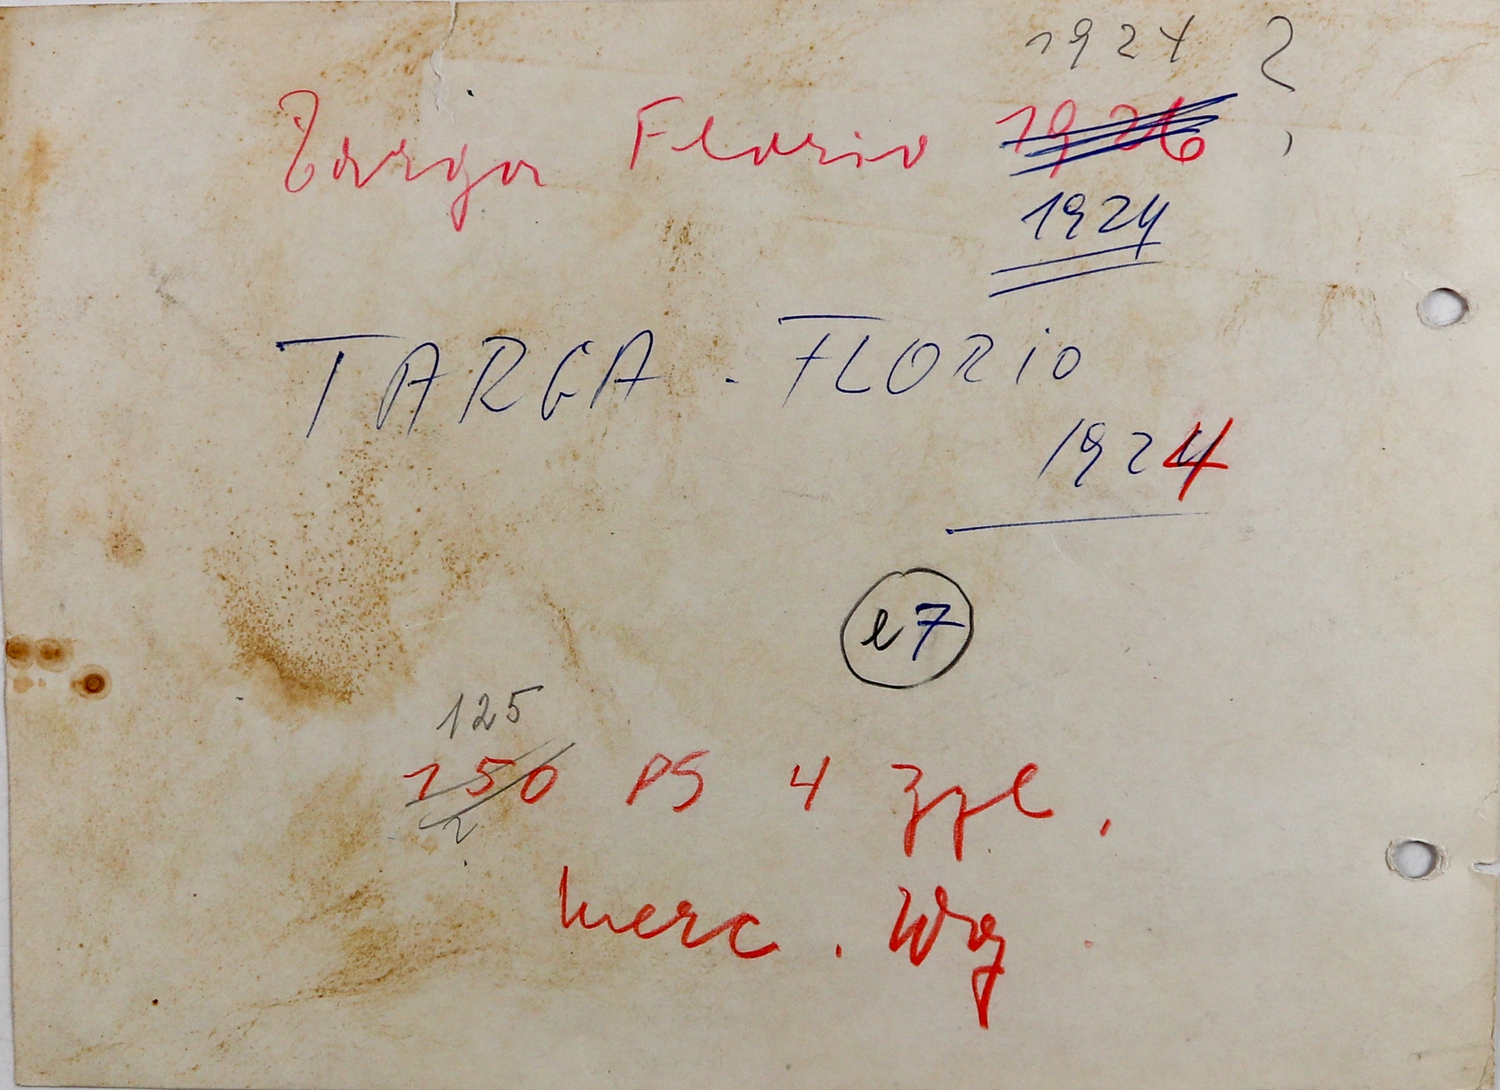 1924 ?
Targa Florio 1926
1924
TARGA - FLORIO
1924
e7
125
150 PS 4 Zyl.
2
Merc. Wg.